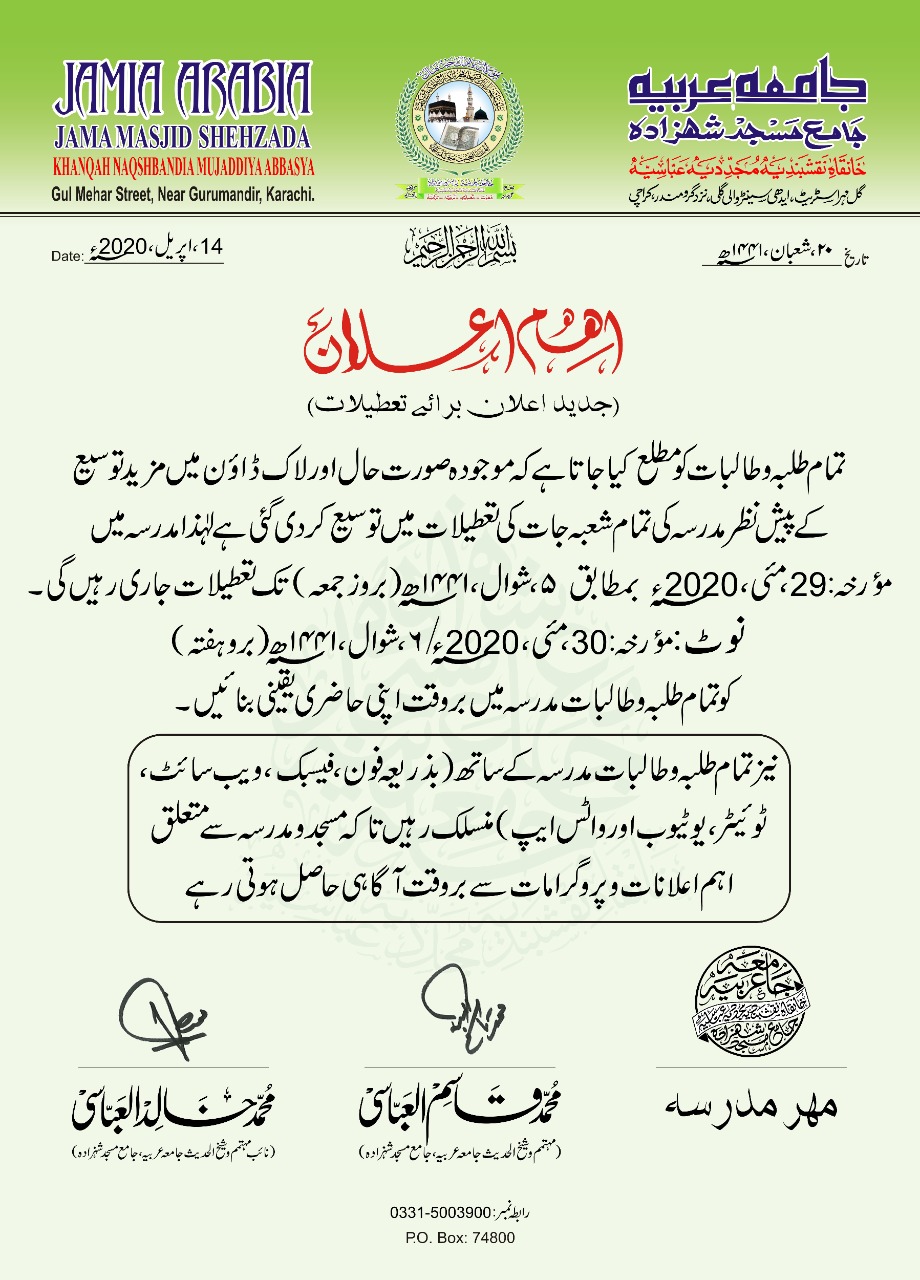 JAMIA ARABIA
JAMA MASJID SHEHZADA
KHANQAH NAQSHBANDIA MUJADDIYA ABBASYA
Gul Mehar Street, Near Gurumandir, Karachi.
جامعہ عربیہ
جامع مسجد شهزاده
خانقاہ نقشبندیہ مُجدّدیہ عباسیہ
گل مہر اسٹریٹ، ایدھی سینٹر والی گلی، نزد گرومندر، کراچی
Date: 14، اپریل، 2020ء
بسم الله الرحمن الرحيم
تاریخ ۲۰، شعبان، ۱۴۴۱ھ
اہم اعلان
(جدید اعلان برائے تعطیلات)
تمام طلبہ و طالبات کو مطلع کیا جاتا ہے کہ موجودہ صورت حال اور لاک ڈاؤن میں مزید توسیع
کے پیش نظر مدرسہ کی تمام شعبہ جات کی تعطیلات میں توسیع کر دی گئی ہے لہٰذا مدرسہ میں
مؤرخہ: 29، مئی، 2020ء بمطابق ۵، شوال، ۱۴۴۱ھ (بروز جمعہ) تک تعطیلات جاری رہیں گی۔
نوٹ: مؤرخہ: 30، مئی، 2020ء / ۶، شوال، ۱۴۴۱ھ (برو ہفتہ)
کو تمام طلبہ و طالبات مدرسہ میں بروقت اپنی حاضری یقینی بنائیں۔
نیز تمام طلبہ و طالبات مدرسہ کے ساتھ (بذریعہ فون، فیسبک، ویب سائٹ،
ٹوئیٹر، یوٹیوب اور واٹس ایپ) منسلک رہیں تاکہ مسجد و مدرسہ سے متعلق
اہم اعلانات و پروگرامات سے بروقت آگاہی حاصل ہوتی رہے
جامعہ عربیہ
جامع مسجد شهزاده
مهر مدرسه
محمد قاسم العباسی
(مہتمم و شیخ الحدیث جامعہ عربیہ، جامع مسجد شہزادہ)
محمد خالد العباسی
(نائب مہتمم و شیخ الحدیث جامعہ عربیہ، جامع مسجد شہزادہ)
رابطہ نمبر: 0331-5003900
P.O. Box: 74800